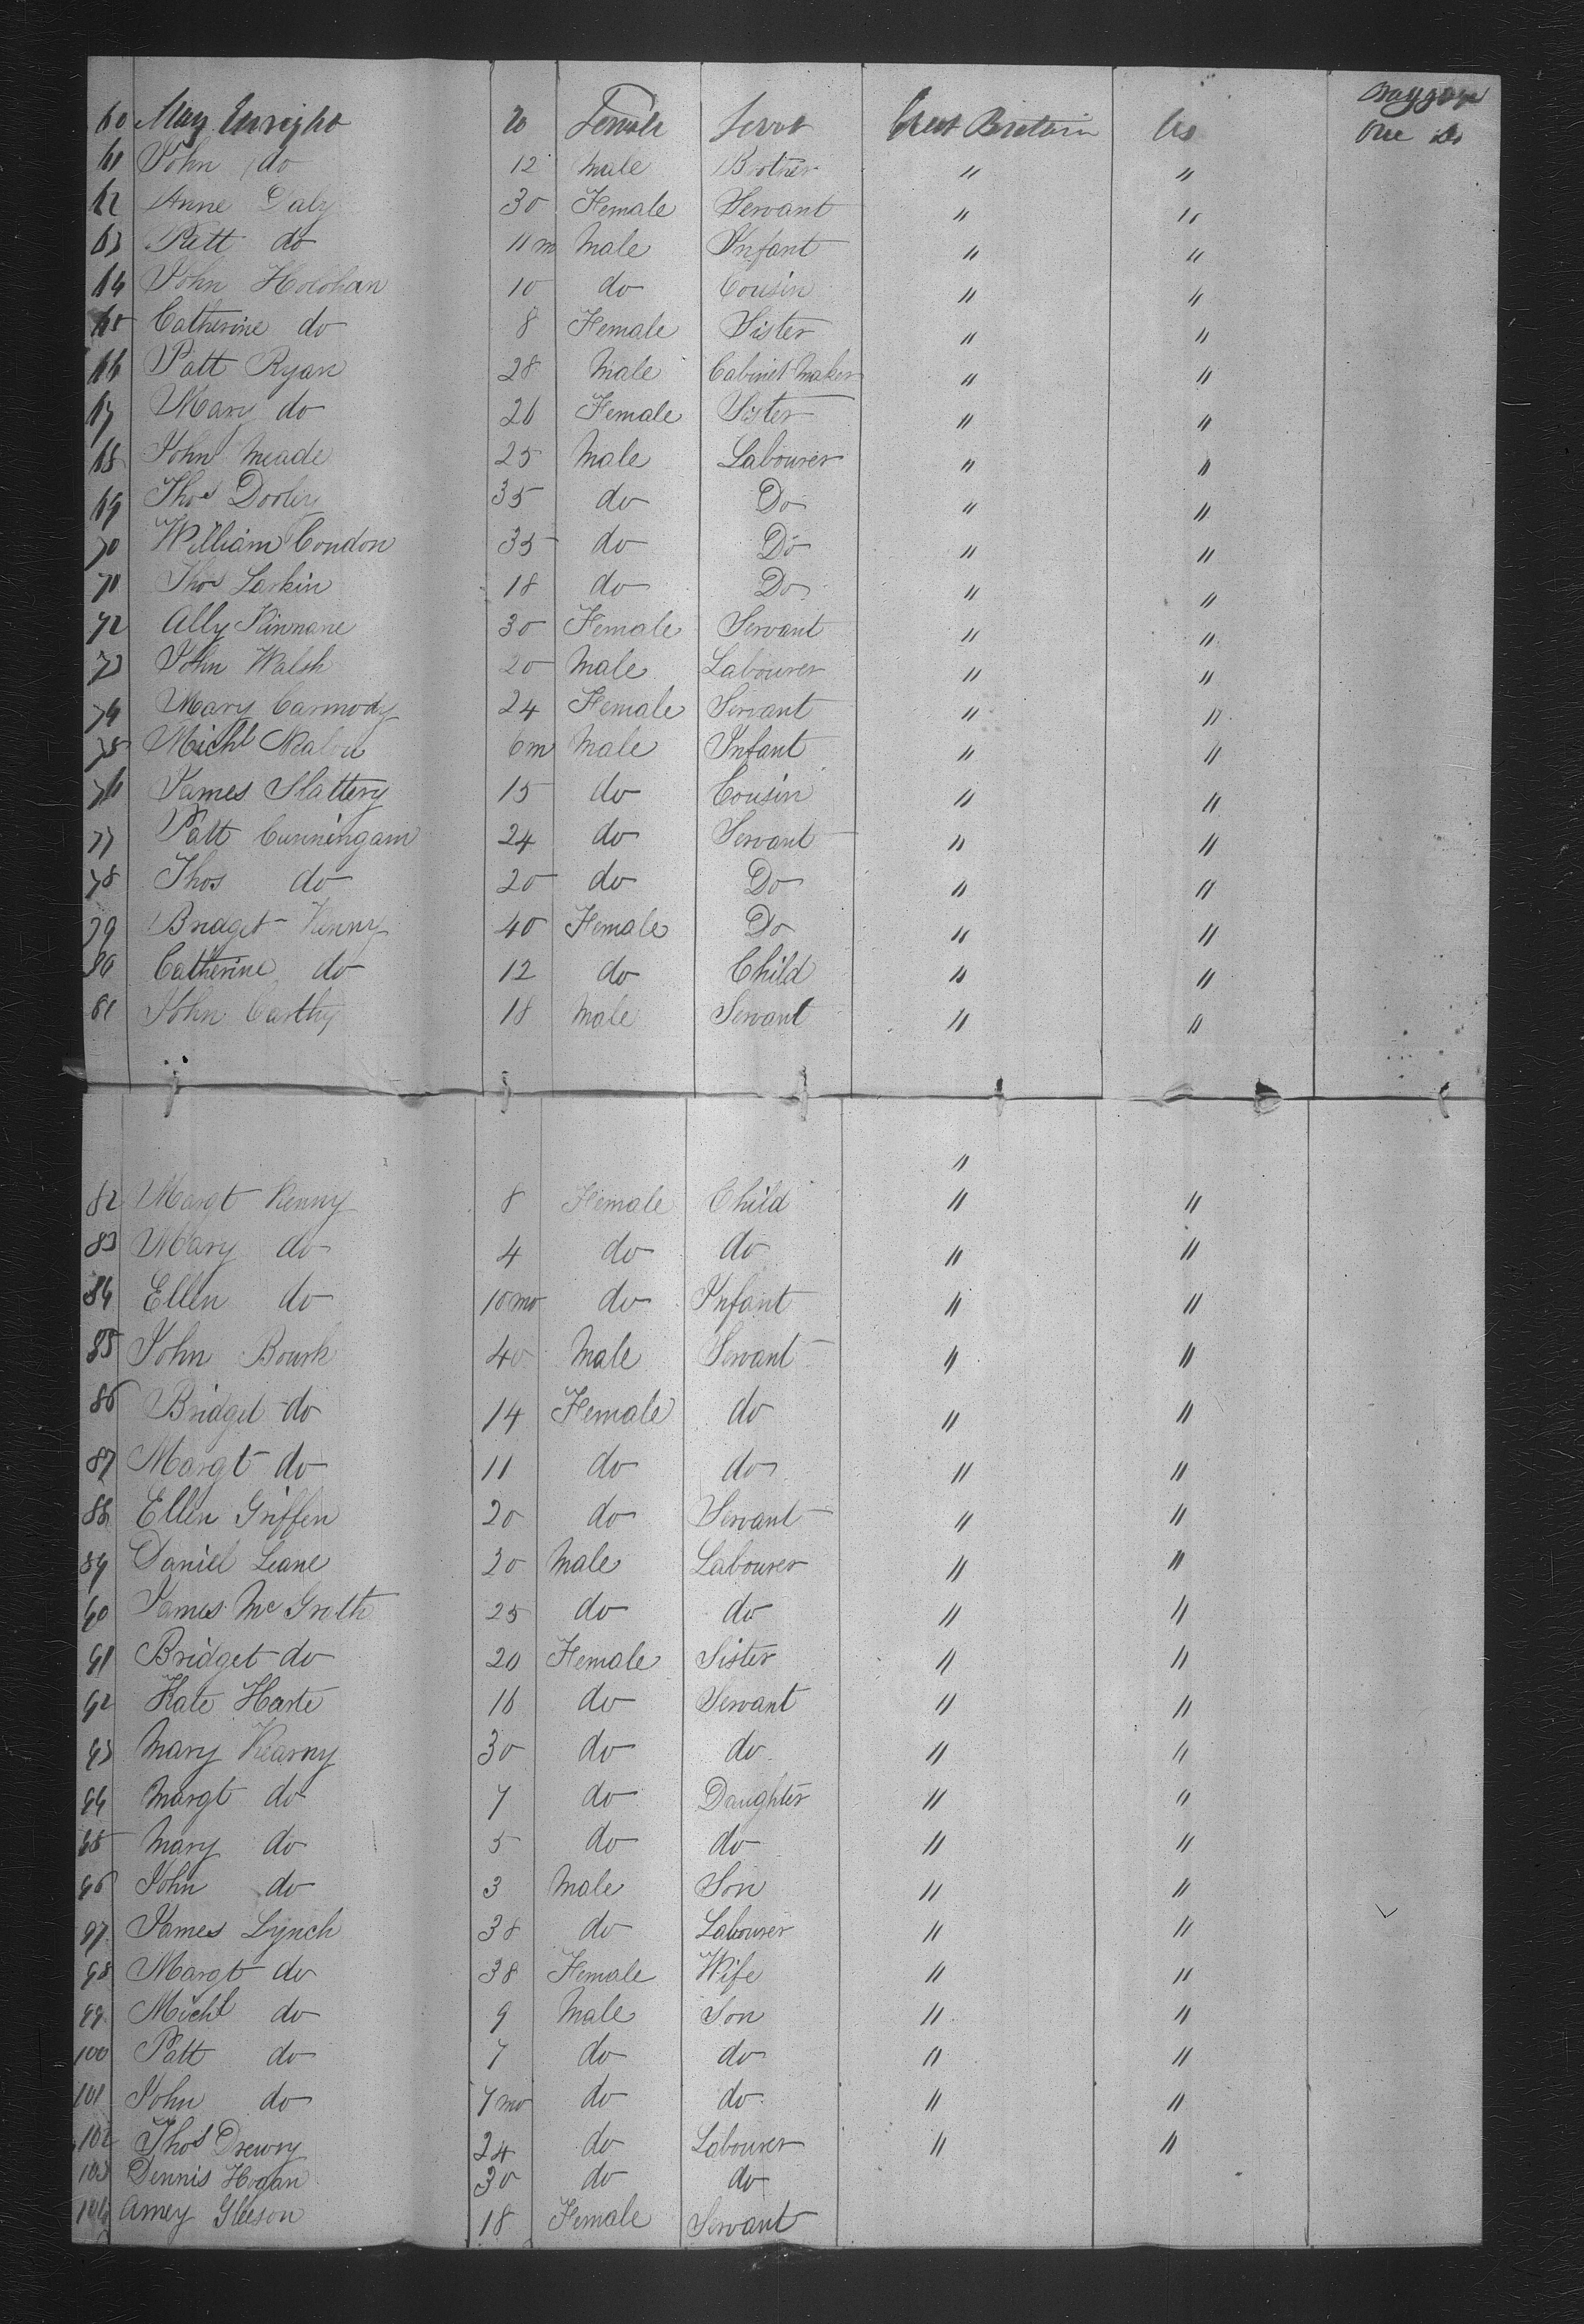 Baggage
60 Mary Enright 20 Female Servt Great Britain US One Do
61 John do 12 male Brother " "
62 Anne Daly 30 Female Servant " "
63 Patt do 11 m Male Infant " "
64 John Holohan 10 do Cousin " "
65 Catherine do 8 Female Sister " "
66 Patt Ryan 28 Male Cabinet Maker " "
67 Mary do 26 Female Sister " "
68 John Meade 25 Male Labourer " "
69 Thos Dooley 35 do Do " "
70 William Condon 35 do Do " "
71 Thos Larkin 18 do Do " "
72 Ally Kinnane 30 Female Servant " "
73 John Walsh 20 Male Labourer " "
74 Mary Carmody 24 Female Servant " "
75 Michl 6m Male Infant " "
76 James Slattery 15 do Cousin " "
77 Patt Cunningam 24 do Servant " "
78 Thos do 20 do Do " "
79 Bridget Kenny 40 Female Do " "
80 Catherine do 12 do Child " "
81 John Carthy 18 Male Servant " "
"
82 Margt Kenny 8 Female Child " "
83 Mary do 4 do do " "
84 Ellen do 10 mo do Infant " "
85 John Bourk 40 Male Servant " "
86 Bridget do 14 Female do " "
87 Margt do 11 do do " "
88 Ellen Griffen 20 do Servant " "
89 Daniel Leane 30 Male Labourer " "
90 James McGrath 25 do do " "
91 Bridget do 20 Female Sister " "
92 Kate Harte 16 do Servant " "
93 Mary Kearny 30 do do " "
94 Margt do 7 do Daughter " "
95 Mary do 5 do do " "
96 John do 3 Male Son " "
97 James Lynch 38 do Labourer " "
98 Margt do 38 Female Wife " "
99 Michl do 9 Male Son " "
100 Patt do 7 do do " "
101 John do 7 mo do do " "
102 Thos Drewry 24 do Labourer " "
103 Dennis Hogan 30 do do
104 Amey Gleeson 18 Female Servant